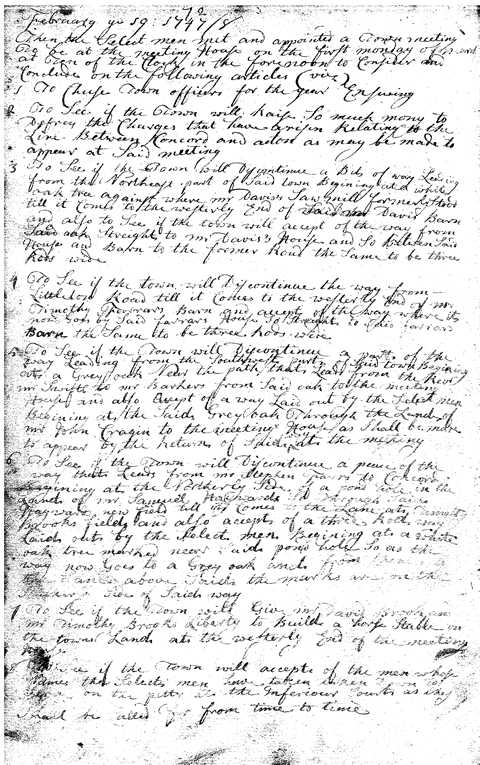 72
February ye 19. 1747/8
Then the Select men met and appointed a Town meeting
to be at the meeting House on the first monday of march
at Ten of the Clock in the forenoon to Consider and
Conclude on the following articles (viz)
1 To Chuse Town officers for the year Ensueing
2 To See if the Town will Raise So much mony to
Defrey the Charges that have arisen Relating to the
Line Between Concord and acton as may be made to
appear at Said meeting
3 To See if the Town will Discontinue a Bit of way Leading
from the Northeast part of Said town Begining at a white
oak tree against where mr Davis's Saw mill formerly stood
till it Comes to the westerly End of Said mr Davis Barn
and also to See if the town will acept of the way from
Said oak Streight to mr Davis's House and So Between Said
House and Barn to the former Road the Same to be three
Rods wide
4 To See if the town will Discontinue the way from
Littleton Road till it Comes to the westerly End of mr
Timothy Farrars Barn and accept of the way where it
now Goes by Said farrars House So Streight to Said farrars
Barn the Same to be three Rods wide
5 To See if the Town will Discontinue a part of the
way Leading from the Southwest part of Said town Begining
at a Grey oak Near the path that Leads from the Revd
mr Swifts to mr Barkers from Said oak to the meeting
House and also accept of a way Laid out by the Select men
Begining at the Said Grey oak Through the Land of
mr John Cragin to the meeting House as Shall be made
to appear by the Return of Said way at the meeting
6 To See if the Town will Discontinue a peace of the
way that Leads from mr Stephen farrs to Concord
Begining at the Northerly Side of a pond hole in the
Lands of mr Samuel Haywards So Through Said
Haywards new field till it Comes to the Lane at
Brooks field and also accepts of a three Rod way
Laid out by the Select men Begining at a white
oak tree marked near Said pond hole So as the
way now Goes to a Grey oak and from thence
the Lane above Said the marks are on the
Side of Said way
7 To See if the Town will Give mr David Brooks and
mr Timothy Brooks Liberty to Build a horse Stable on
the towns Land at the westerly End of the meeting
8 To See if the Town will accepts of the men whose
names the Select men have taken
on the petty at the Inferiour Courts as they
Shall be from time to time